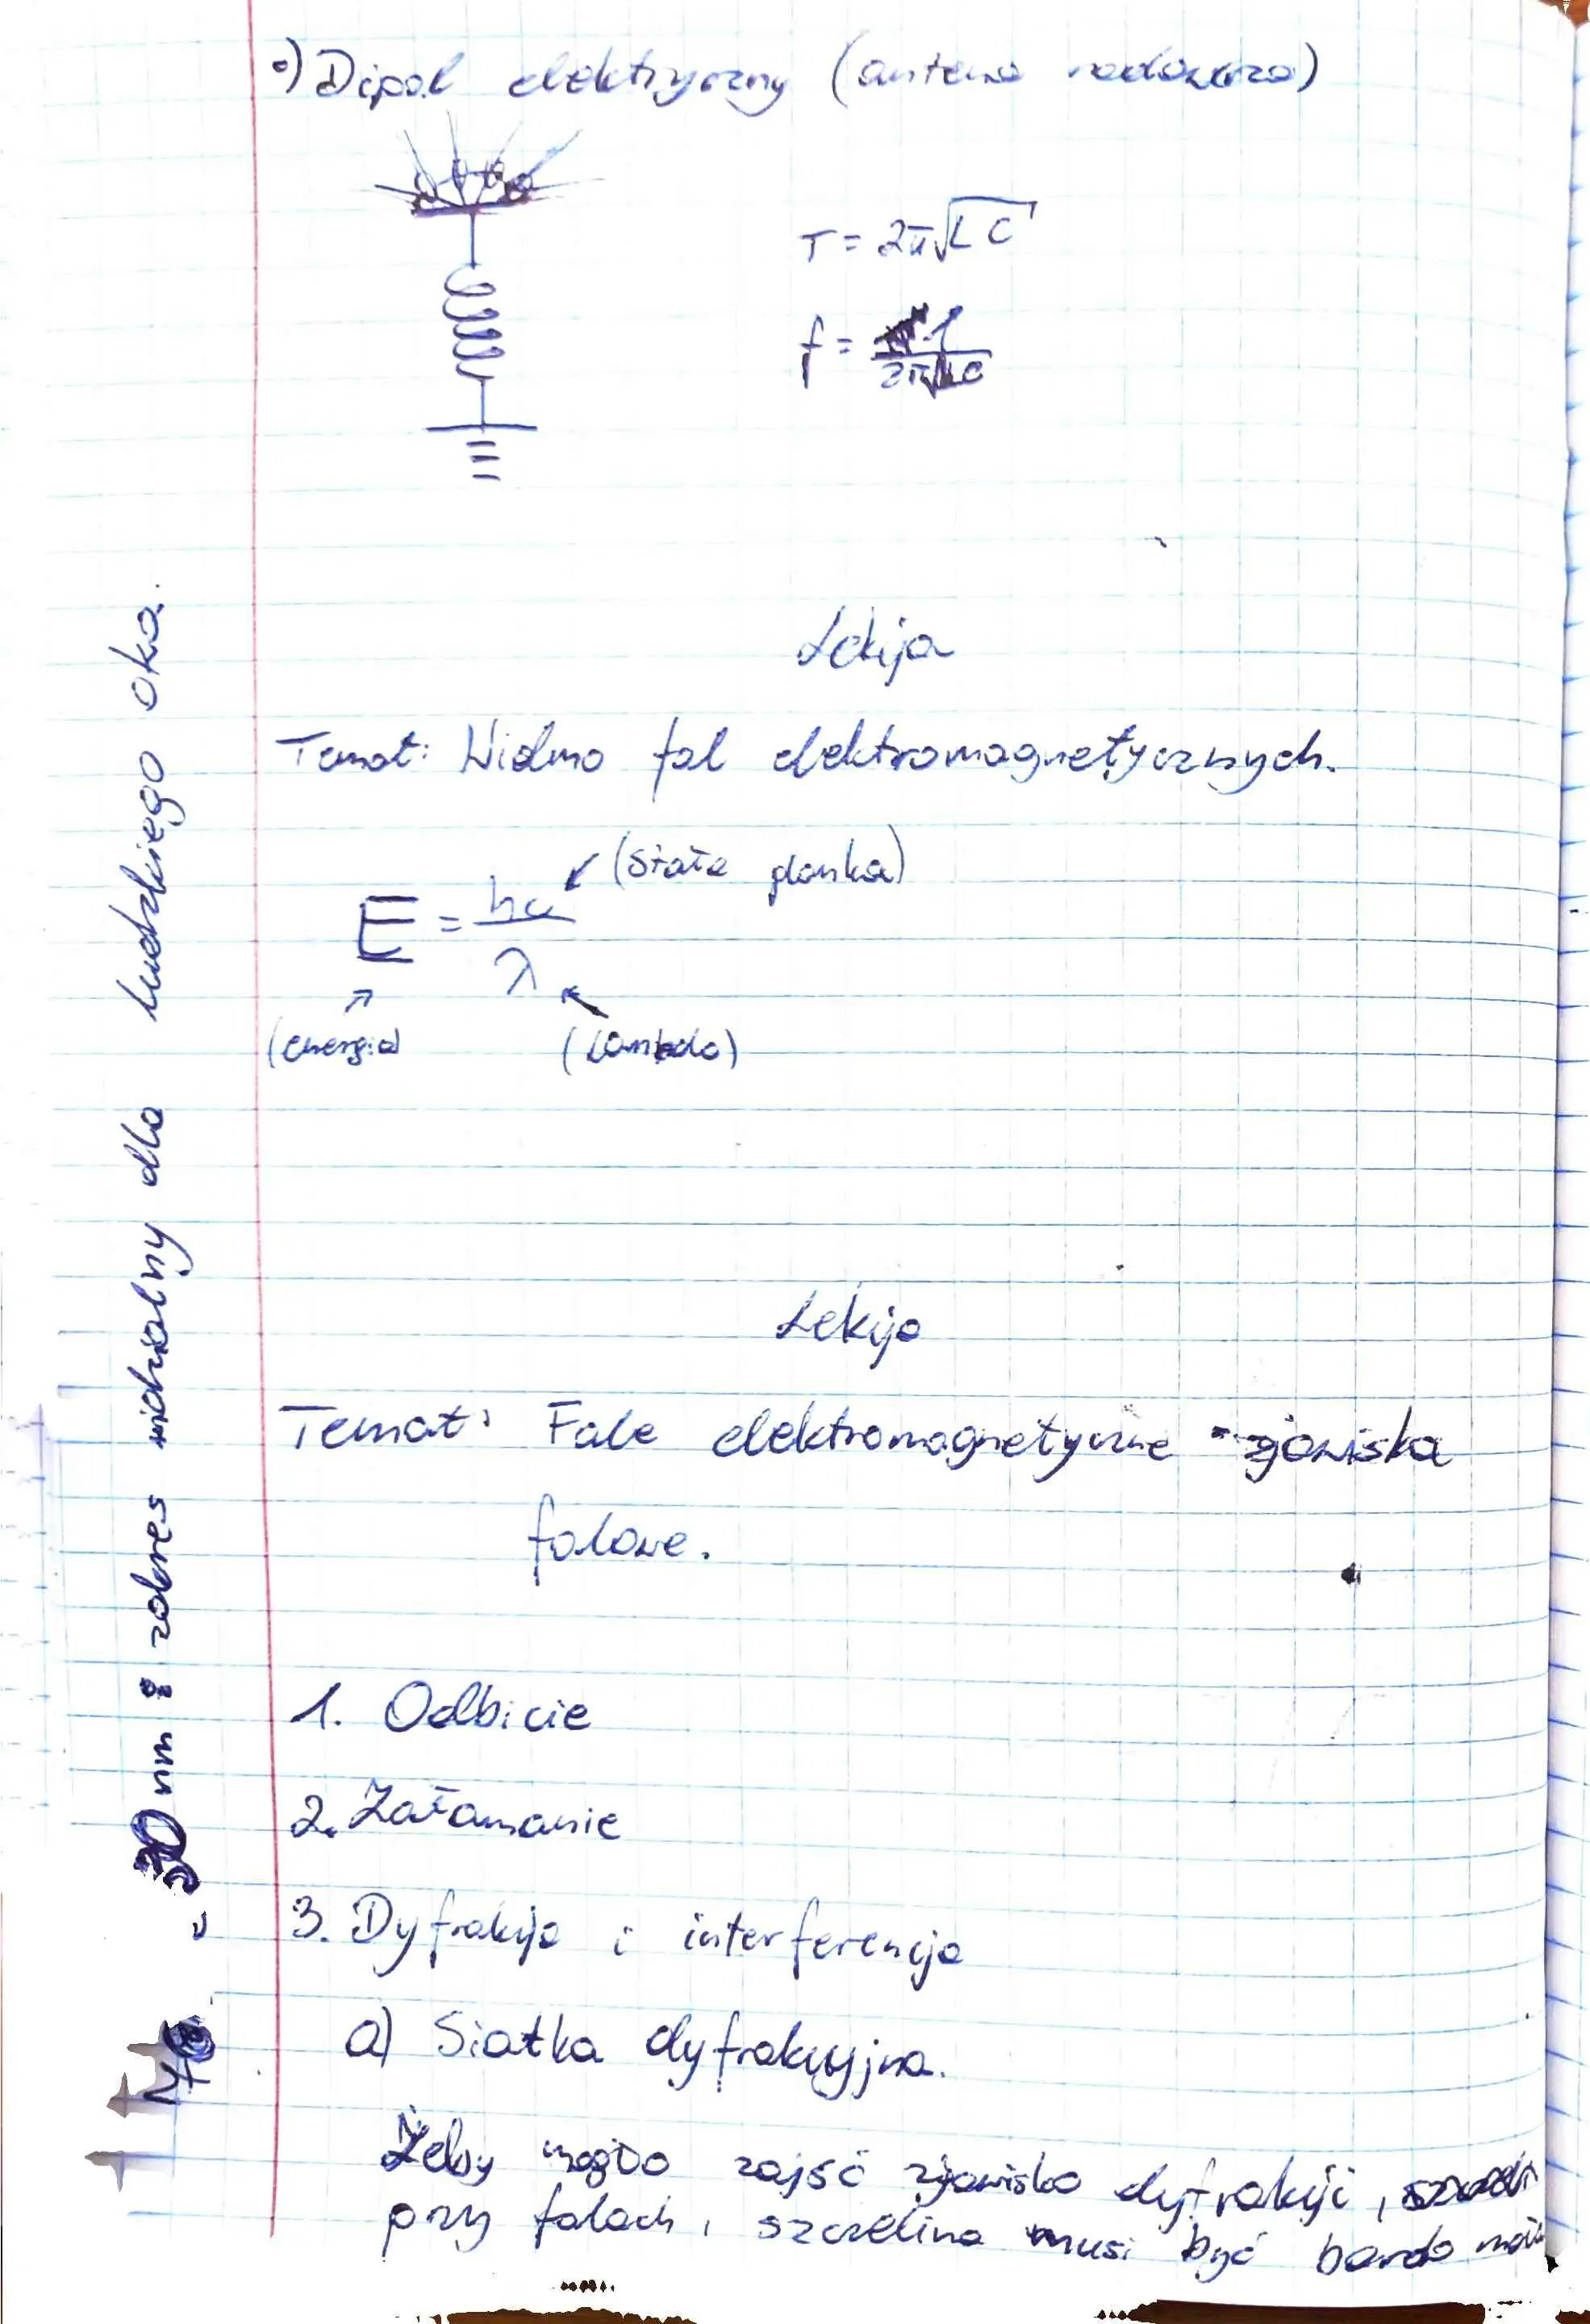 •) Dipol elektryczny (antena nadawcza)
T = 2π√LC
f = 1/2π√LC
Lekcja
Temat: Widmo fal elektromagnetycznych.
(stała planka)
E = hc/λ
(energia) (lambda)
Lekcja
Temat: Fale elektromagnetyczne - zjawiska
falowe.
1. Odbicie
2. Załamanie
3. Dyfrakcja i interferencja
a) Siatka dyfrakcyjna.
Żeby mogło zajść zjawisko dyfrakcji,
przy falach, szczelina musi być bardo
nm : zakres widzialny dla ludzkiego oka.